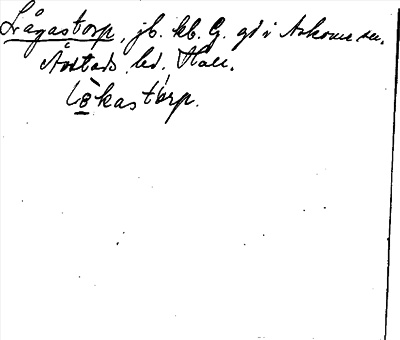 Lågastorp, jb. kb. G. gd i Askome sn.
Årstads hd. Hall.
Lò̲kastòrp.